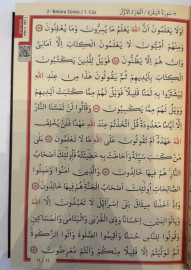 2- Bakara Sûresi / 1. Cüz ﴿٢- سُورَةُ الْبَقَرَةِ / اَلْجُزْءُ الْاَوَّلُ﴾
اَوَلَا يَعْلَمُونَ اَنَّ اللّٰهَ يَعْلَمُ مَا يُسِرُّونَ وَمَا يُعْلِنُونَ
وَمِنْهُمْ اُمِّيُّونَ لَا يَعْلَمُونَ الْكِتَابَ اِلَّٓا اَمَانِيَّ
وَاِنْ هُمْ اِلَّا يَظُنُّونَ فَوَيْلٌ لِلَّذ۪ينَ يَكْتُبُونَ
الْكِتَابَ بِاَيْد۪يهِمْ ثُمَّ يَقُولُونَ هٰذَا مِنْ عِنْدِ اللّٰهِ
لِيَشْتَرُوا بِه۪ ثَمَنًا قَل۪يلًا فَوَيْلٌ لَهُمْ مِمَّا كَتَبَتْ اَيْد۪يهِمْ
وَوَيْلٌ لَهُمْ مِمَّا يَكْسِبُونَ وَقَالُوا لَنْ تَمَسَّنَا النَّارُ
اِلَّٓا اَيَّامًا مَعْدُودَةً قُلْ اَتَّخَذْتُمْ عِنْدَ اللّٰهِ عَهْدًا فَلَنْ يُخْلِفَ
اللّٰهُ عَهْدَهُٓ اَمْ تَقُولُونَ عَلَى اللّٰهِ مَا لَا تَعْلَمُونَ
بَلٰى مَنْ كَسَبَ سَيِّئَةً وَاَحَاطَتْ بِه۪ خَط۪ٓيـَٔتُهُ فَاُولٰٓئِكَ اَصْحَابُ
النَّارِ هُمْ ف۪يهَا خَالِدُونَ وَالَّذ۪ينَ اٰمَنُوا وَعَمِلُوا
الصَّالِحَاتِ اُولٰٓئِكَ اَصْحَابُ الْجَنَّةِ هُمْ ف۪يهَا خَالِدُونَ
وَاِذْ اَخَذْنَا م۪يثَاقَ بَن۪ٓي اِسْرَٓائ۪لَ لَا تَعْبُدُونَ اِلَّا اللّٰهَ
وَبِالْوَالِدَيْنِ اِحْسَانًا وَذِي الْقُرْبٰى وَالْيَتَامٰى وَالْمَسَاك۪ينِ
وَقُولُوا لِلنَّاسِ حُسْنًا وَاَق۪يمُوا الصَّلٰوةَ وَاٰتُوا الزَّكٰوةَ
ثُمَّ تَوَلَّيْتُمْ اِلَّا قَل۪يلًا مِنْكُمْ وَاَنْتُمْ مُعْرِضُونَ